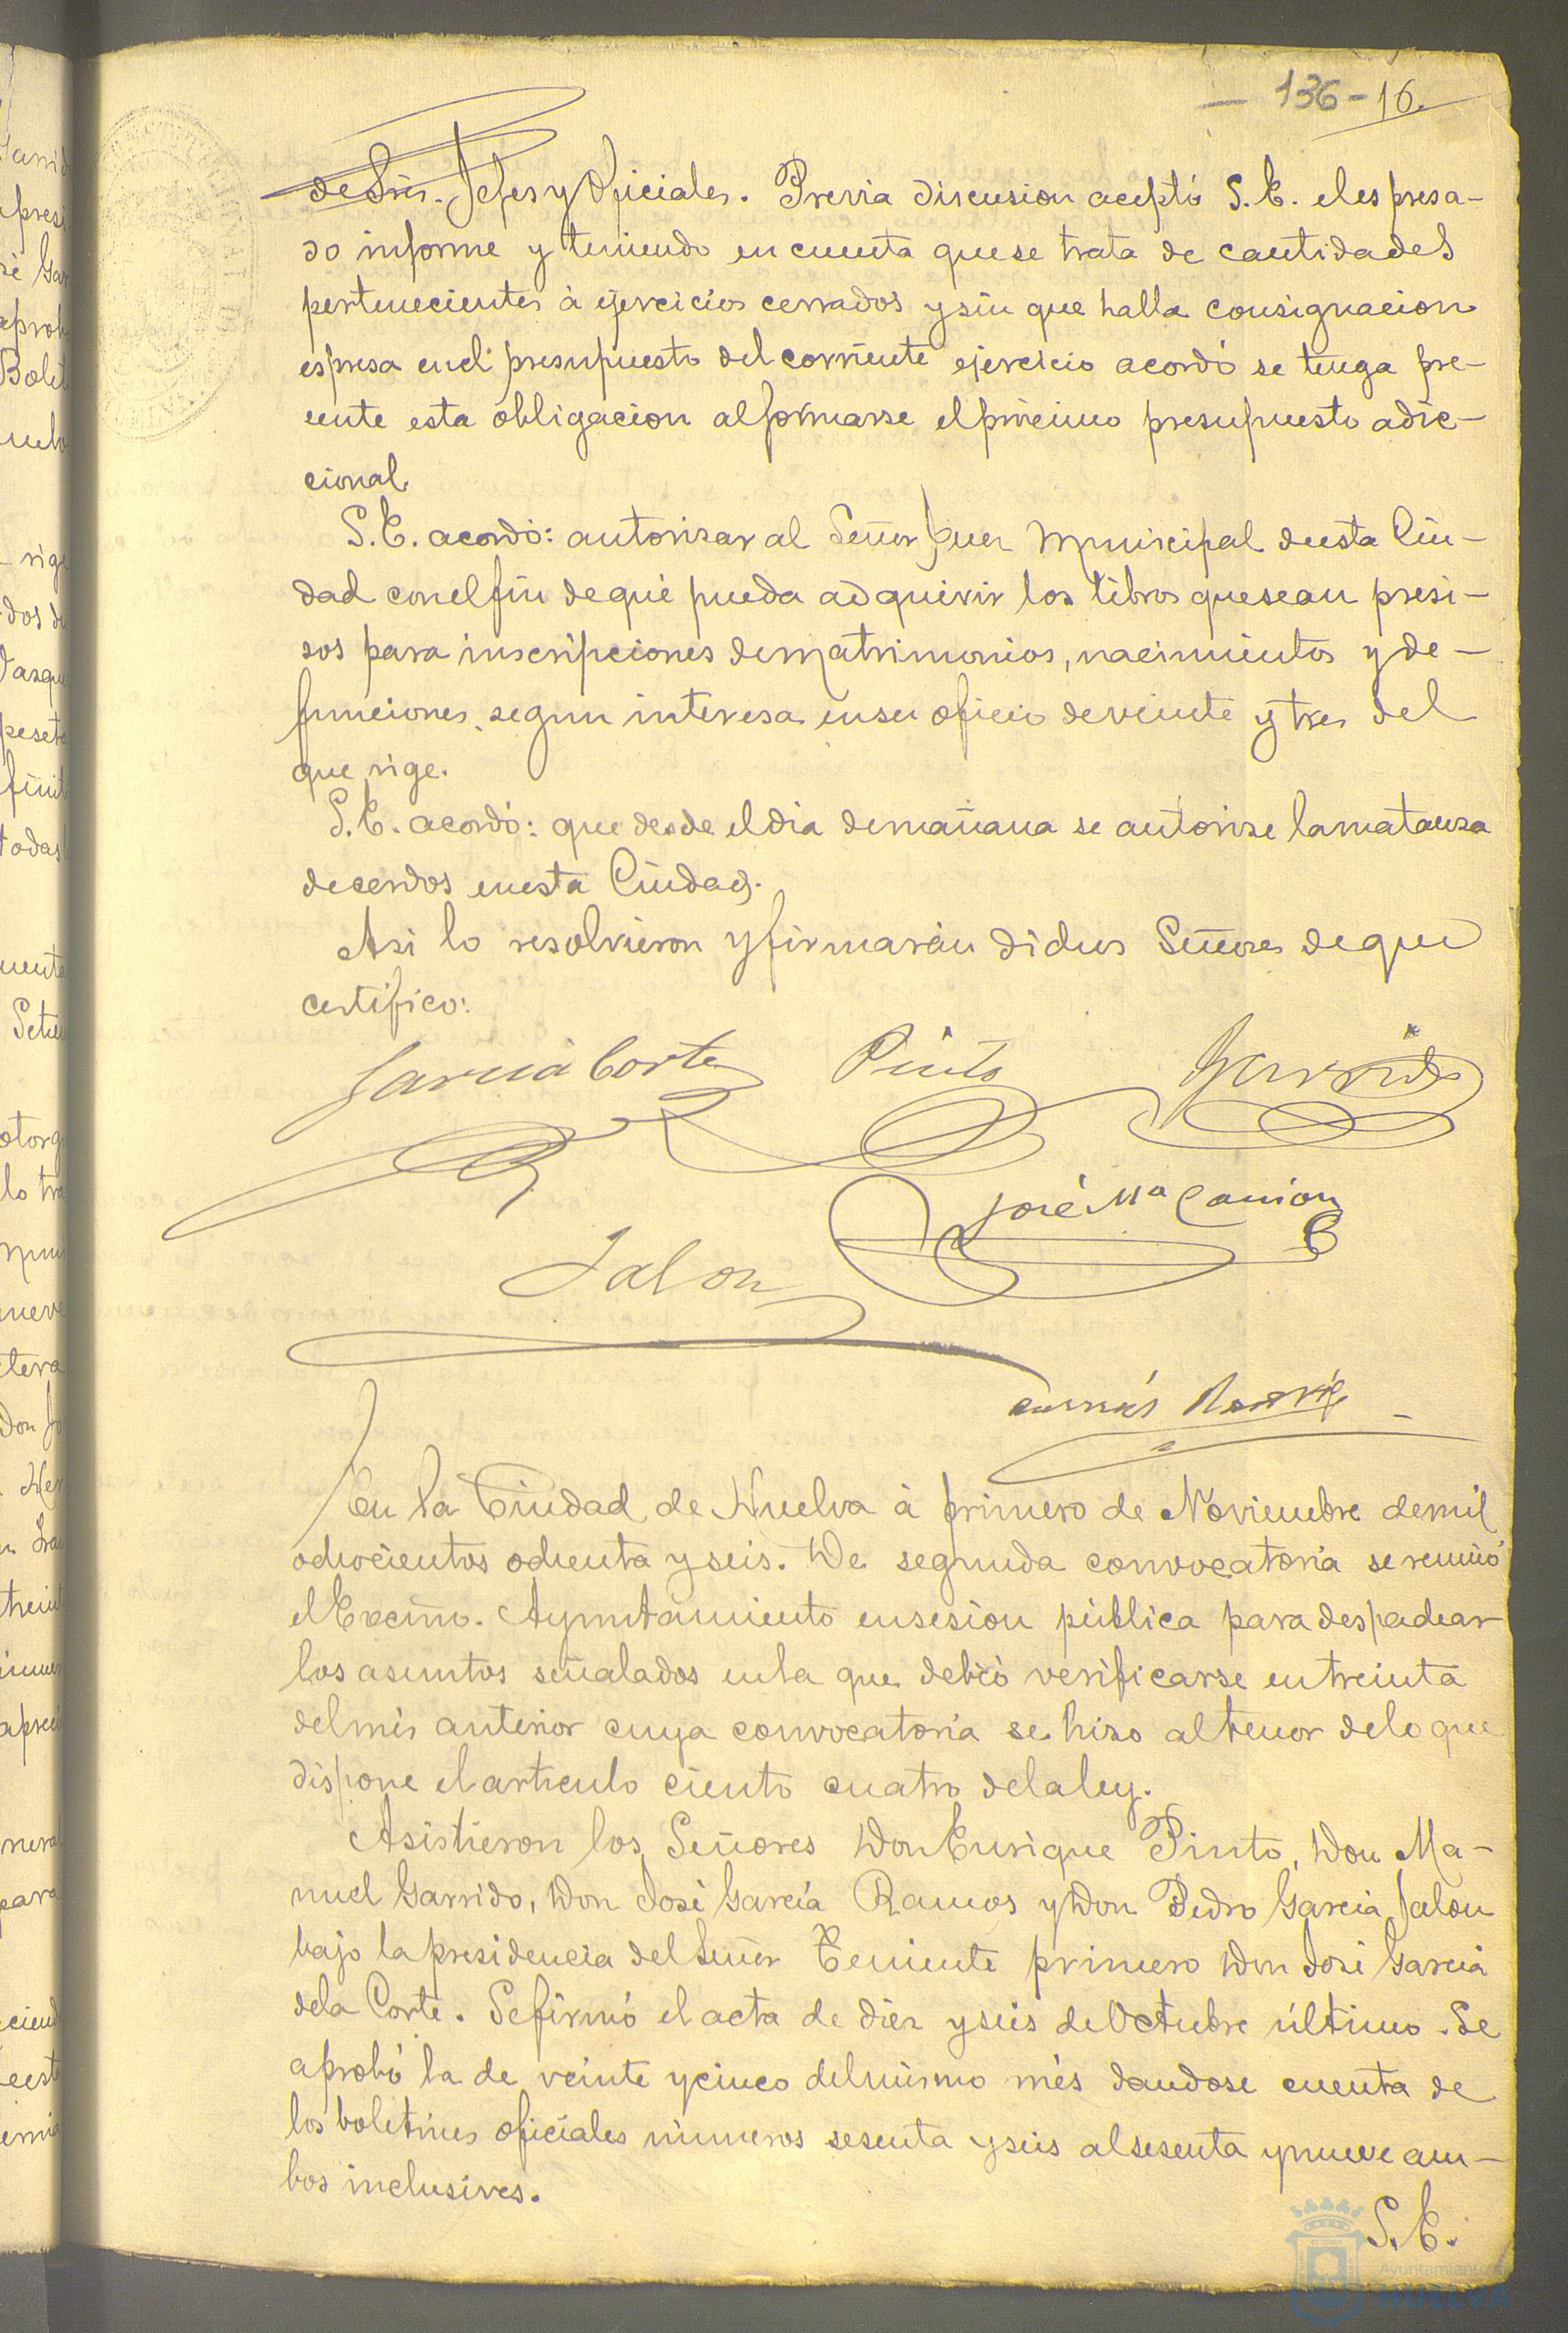 136 - 16.
de Srēs. Jefes y Oficiales. Previa discusion aceptó S. E. el espresa-
do informe y teniendo en cuenta que se trata de cantidades
pertenecientes á ejercicios cerrados y sin que halla consignacion
espresa en el presupuesto del corriente ejercicio acordó se tenga pre-
sente esta obligacion al formarse el prócimo presupuesto adic-
cional.
S. E. acordó: autorizar al Señor Juez Municipal de esta Ciu-
dad con el fin de que pueda adquirir los libros que sean presi-
sos para inscripciones de matrimonios, nacimientos y de-
funciones segun interesa en su oficio de veinte y tres del
que rige.
S. E. acordó: que desde el dia de mañana se autorize la matanza
de cerdos en esta Ciudad.
Asi lo resolvieron y firmarán dichos Señores de que
certifico:
Garcia Corte Pinto Garrido
José Mª
Jalon
En la Ciudad de Huelva á primero de Noviembre de mil
ochocientos ochenta y seis. De segunda convocatoria se reunió
el Excmo. Ayuntamiento en sesion pública para despachar
los asuntos señalados en la que debió verificarse en treinta
del mes anterior cuya convocatoria se hizo al tenor de lo que
dispone el articulo ciento cuatro de la ley.
Asistieron los Señores Don Enrique Pinto, Don Ma-
nuel Garrido, Don José García Ramos y Don Pedro Garcia Jalon
bajo la presidencia del Señor Teniente primero Don José Garcia
de la Corte. Se firmó el acta de diez y seis de Octubre último. Se
aprobó la de veinte y cinco del mismo més dandose cuenta de
los boletines oficiales números sesenta y seis al sesenta y nueve am-
bos inclusives.
S. E.
Ayuntamiento de
HUELVA